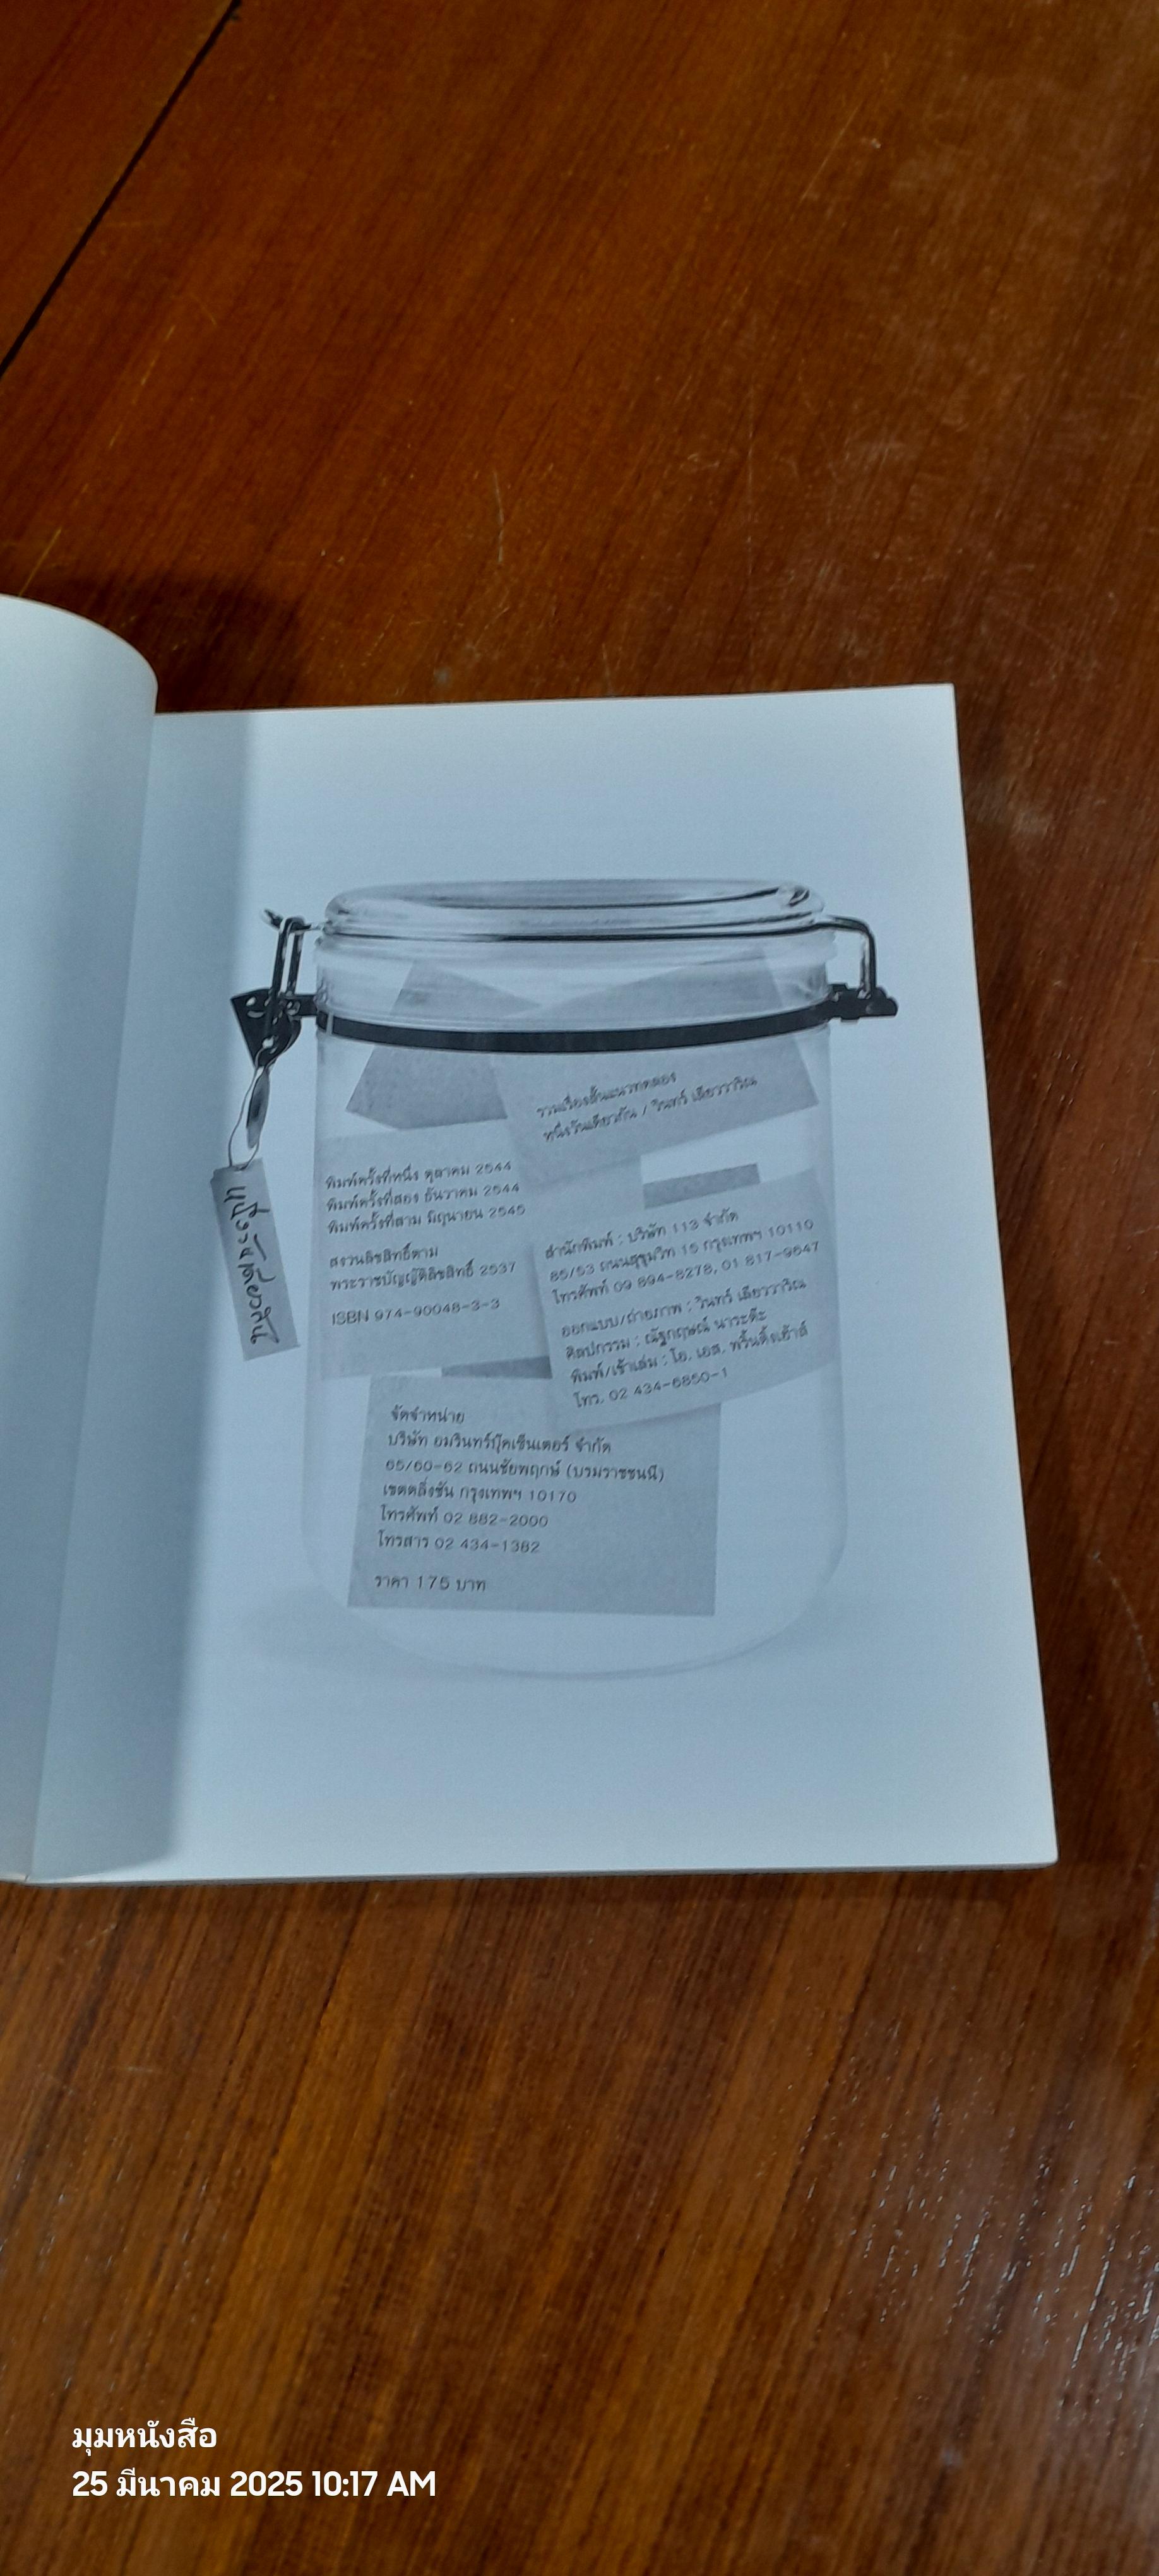 รวมเรื่องสั้นแนวทดลอง
หนึ่งวันเดียวกัน / วินทร์ เลียววาริณ
พิมพ์ครั้งที่หนึ่ง ตุลาคม 2544
พิมพ์ครั้งที่สอง ธันวาคม 2544
พิมพ์ครั้งที่สาม มิถุนายน 2545
สงวนลิขสิทธิ์ตาม
พระราชบัญญัติลิขสิทธิ์ 2537
ISBN 974-90048-3-3
หนึ่งวันเดียวกัน
สำนักพิมพ์ : บริษัท 113 จำกัด
85/53 ถนนสุขุมวิท 15 กรุงเทพฯ 10110
โทรศัพท์ 09 894-8278, 01 817-9647
ออกแบบ/ถ่ายภาพ : วินทร์ เลียววาริณ
ศิลปกรรม : ณัฐกฤษณ์ นาระตะ
พิมพ์/เข้าเล่ม : โอ. เอส. พริ้นติ้งเฮ้าส์
โทร. 02 434-6850-1
จัดจำหน่าย
บริษัท อมรินทร์บุ๊คเซ็นเตอร์ จำกัด
65/60-62 ถนนชัยพฤกษ์ (บรมราชชนนี)
เขตตลิ่งชัน กรุงเทพฯ 10170
โทรศัพท์ 02 882-2000
โทรสาร 02 434-1382
ราคา 175 บาท
มุมหนังสือ
25 มีนาคม 2025 10:17 AM